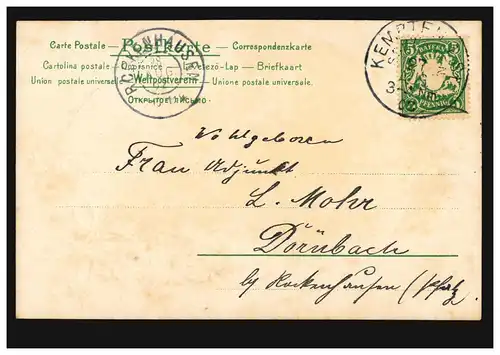 Carte Postale — Postkarte — Correspondenzkarte
Cartolina postale — Dopisnice — Levelező-Lap — Briefkaart
Union postale universelle Weltpostverein — Unione postale universale.
ОТКРЫТОЕ ПИСЬМО
ROCKENHAUSEN
KEMPTEN
5 BAYERN 5
PFENNIG
Wohlgeboren
Frau Adjunkt
L. Mohr
Dörnbach
b/ Rockenhausen (Pfalz